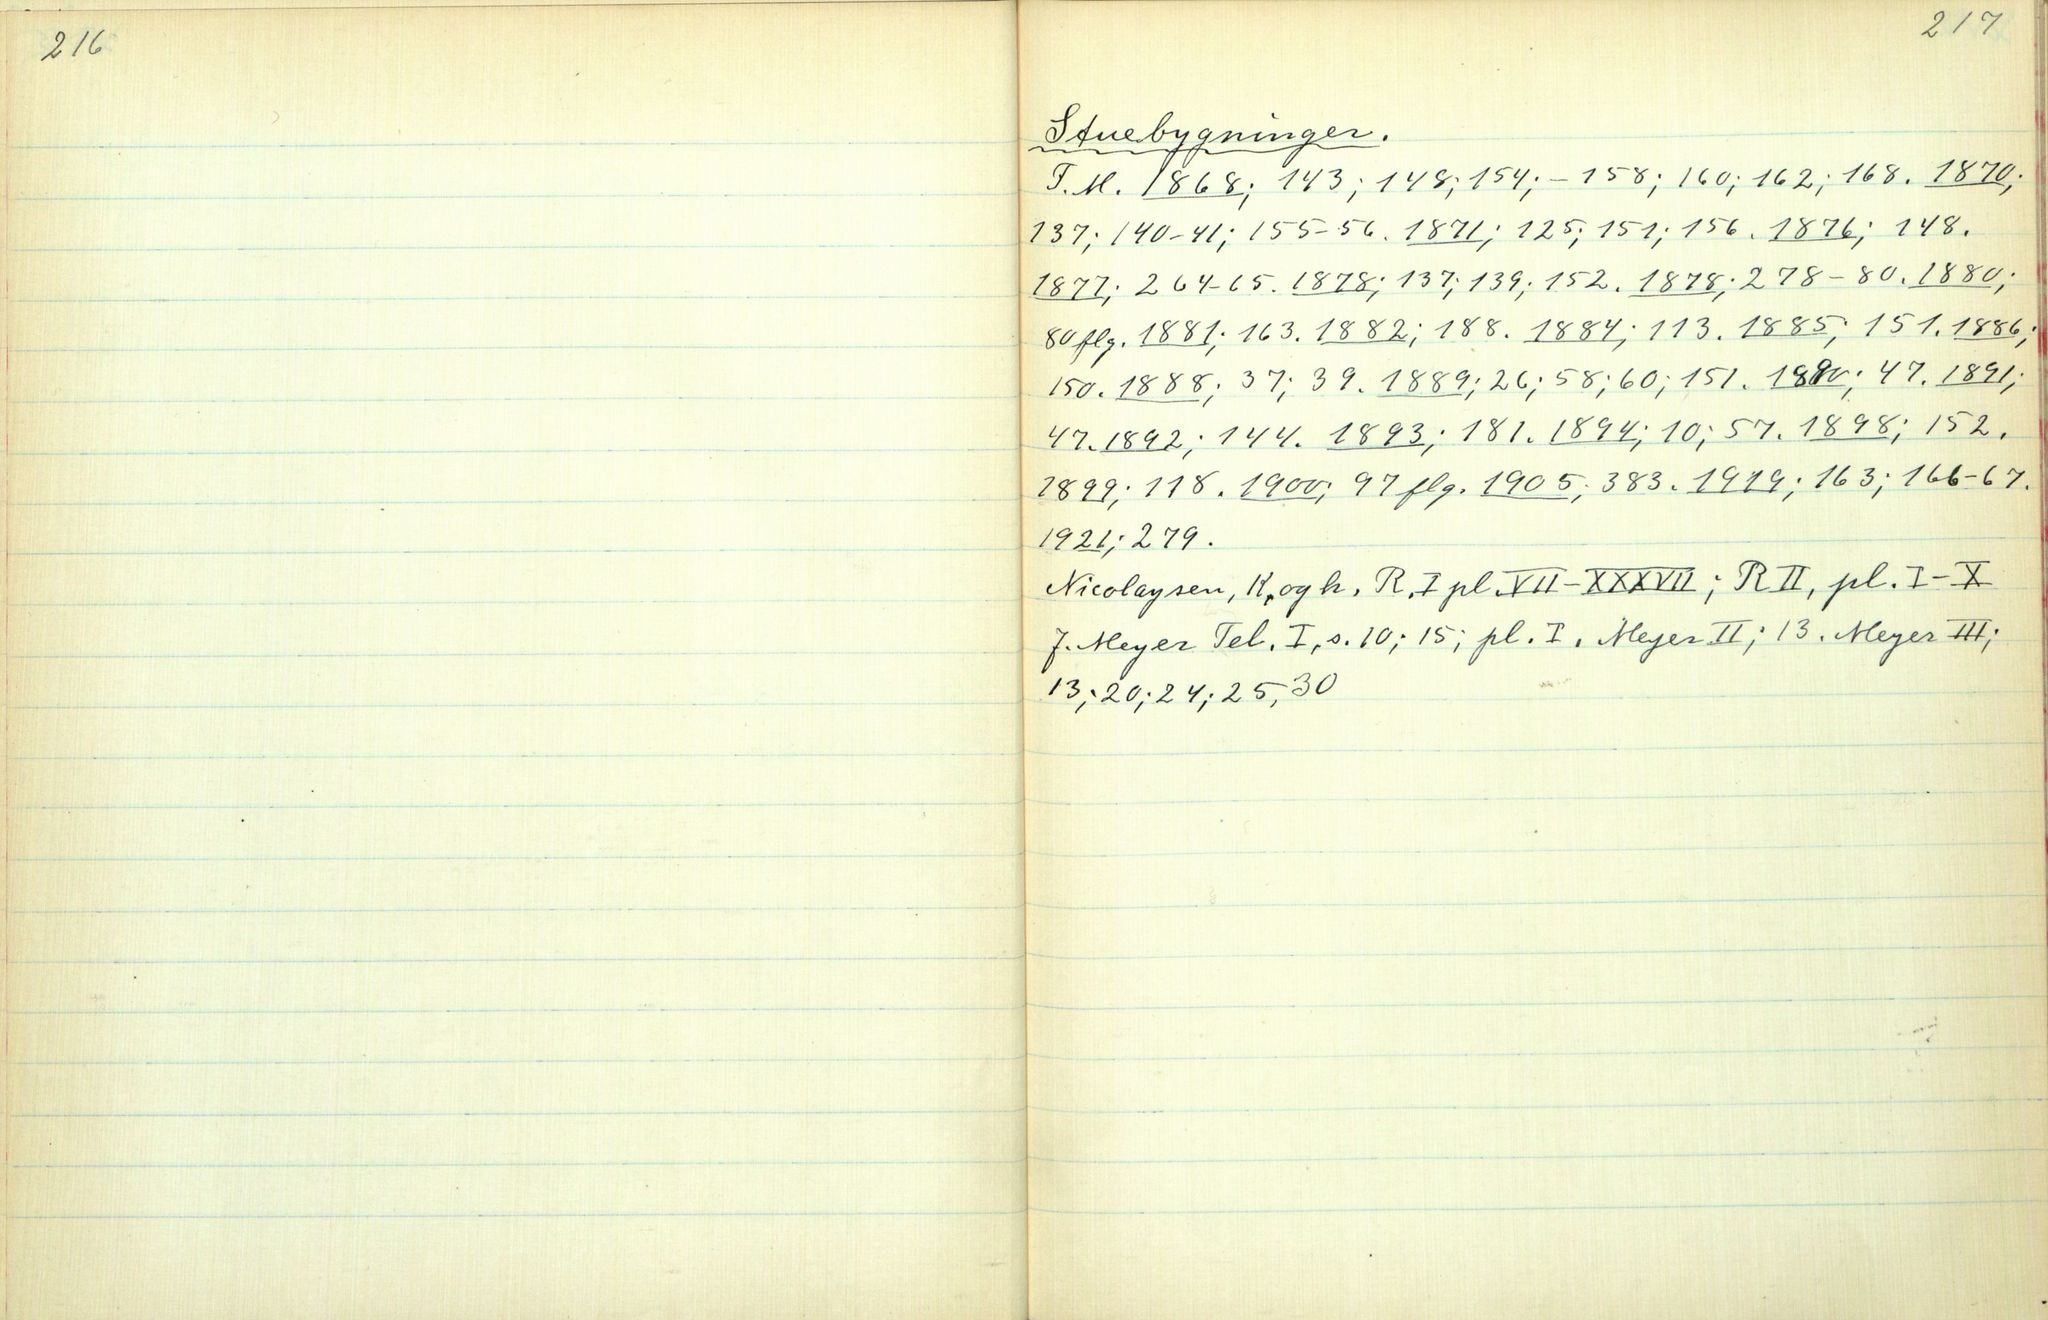 216
217
Stuebygninger.
F. M. 1868; 143; 148; 154; - 158; 160; 162; 168. 1870;
137; 140-41; 155-56. 1871; 125; 151; 156. 1876; 148.
1877; 264-65. 1878; 137; 139; 152. 1878; 278-80. 1880;
80 flg. 1881; 163. 1882; 188. 1884; 113. 1885; 151. 1886;
150. 1888; 37; 39. 1889; 26; 58; 60; 151. 1890; 47. 1891;
47. 1892; 144. 1893; 181. 1894; 10; 57. 1898; 152.
1899; 118. 1900; 97 flg. 1905; 383. 1919; 163; 166-67.
1921; 279.
Nicolaysen, K. og h. R. I pl. VII-XXXVII; R II, pl. I-X
J. Meyer Tel. I, s. 10; 15; pl. I. Meyer II; 13. Meyer III;
13; 20; 24; 25, 30